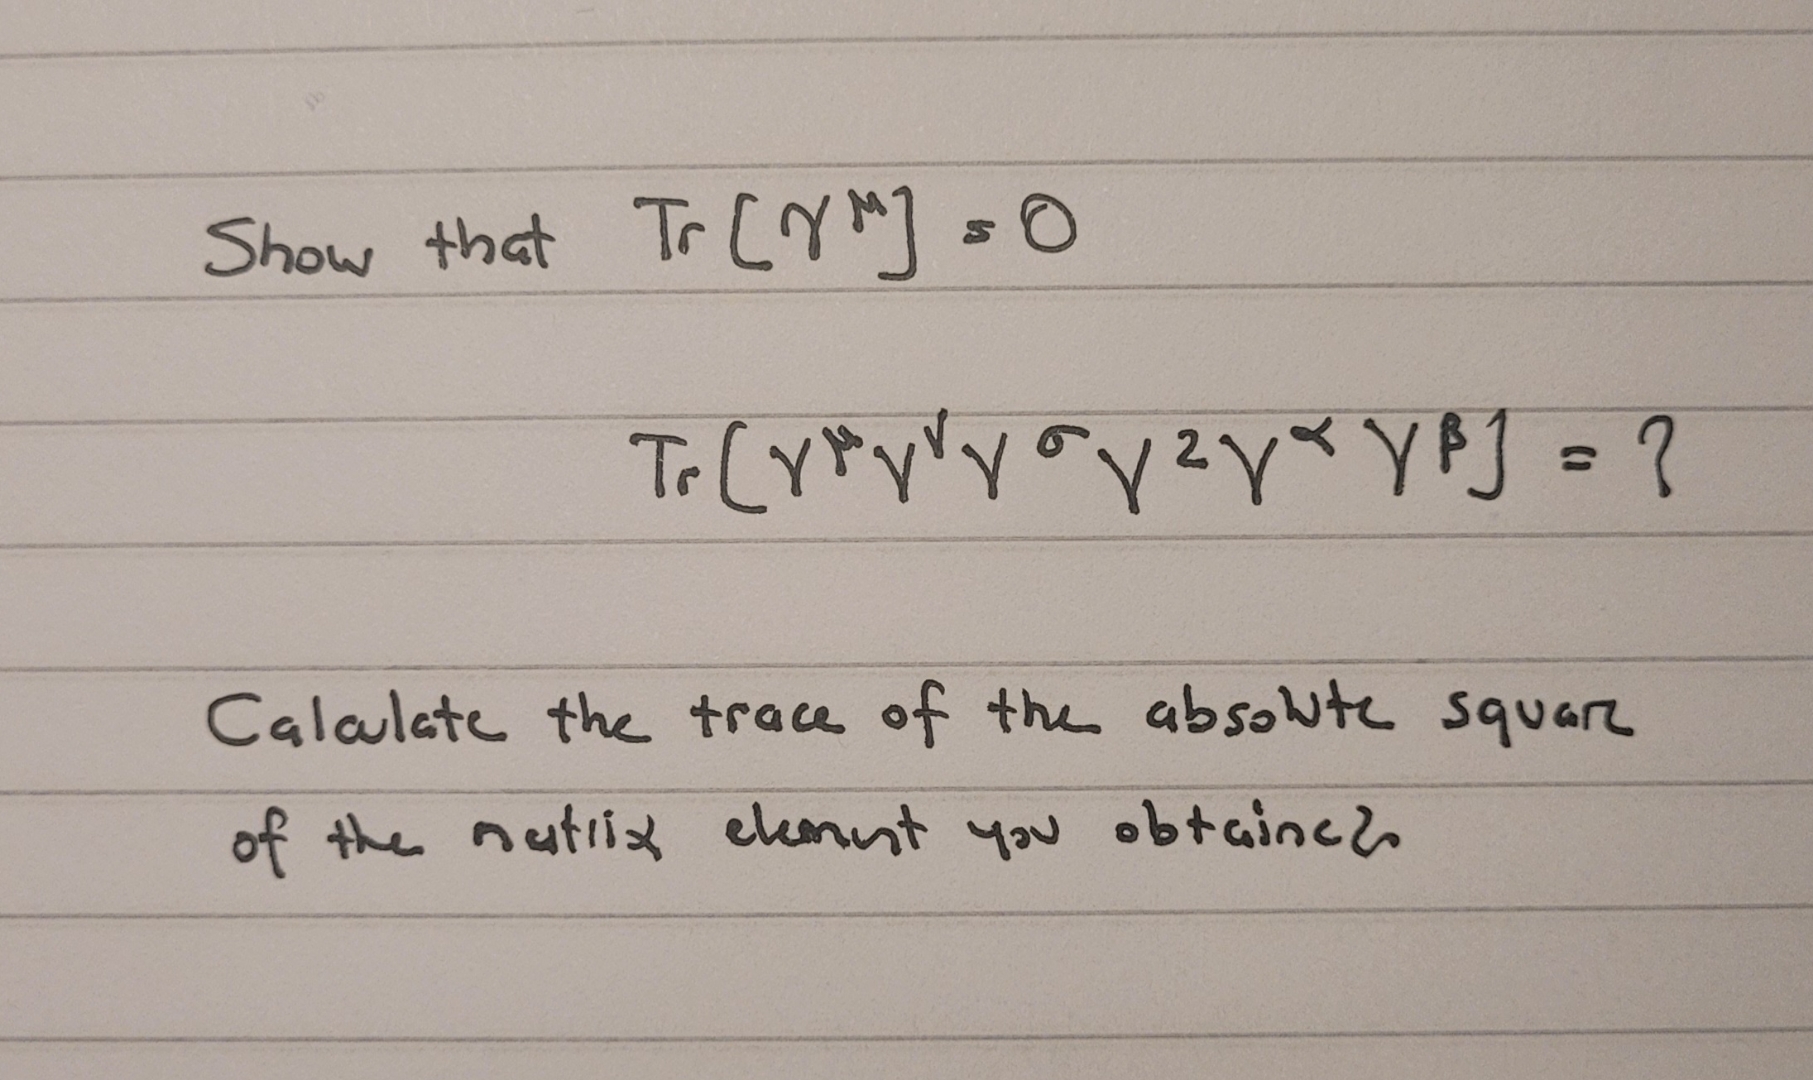 Show that Tr[γ^μ] = 0
Tr[γ^μ γ^ν γ^σ γ^2 γ^α γ^β] = ?
Calculate the trace of the absolute square
of the matrix element you obtained.